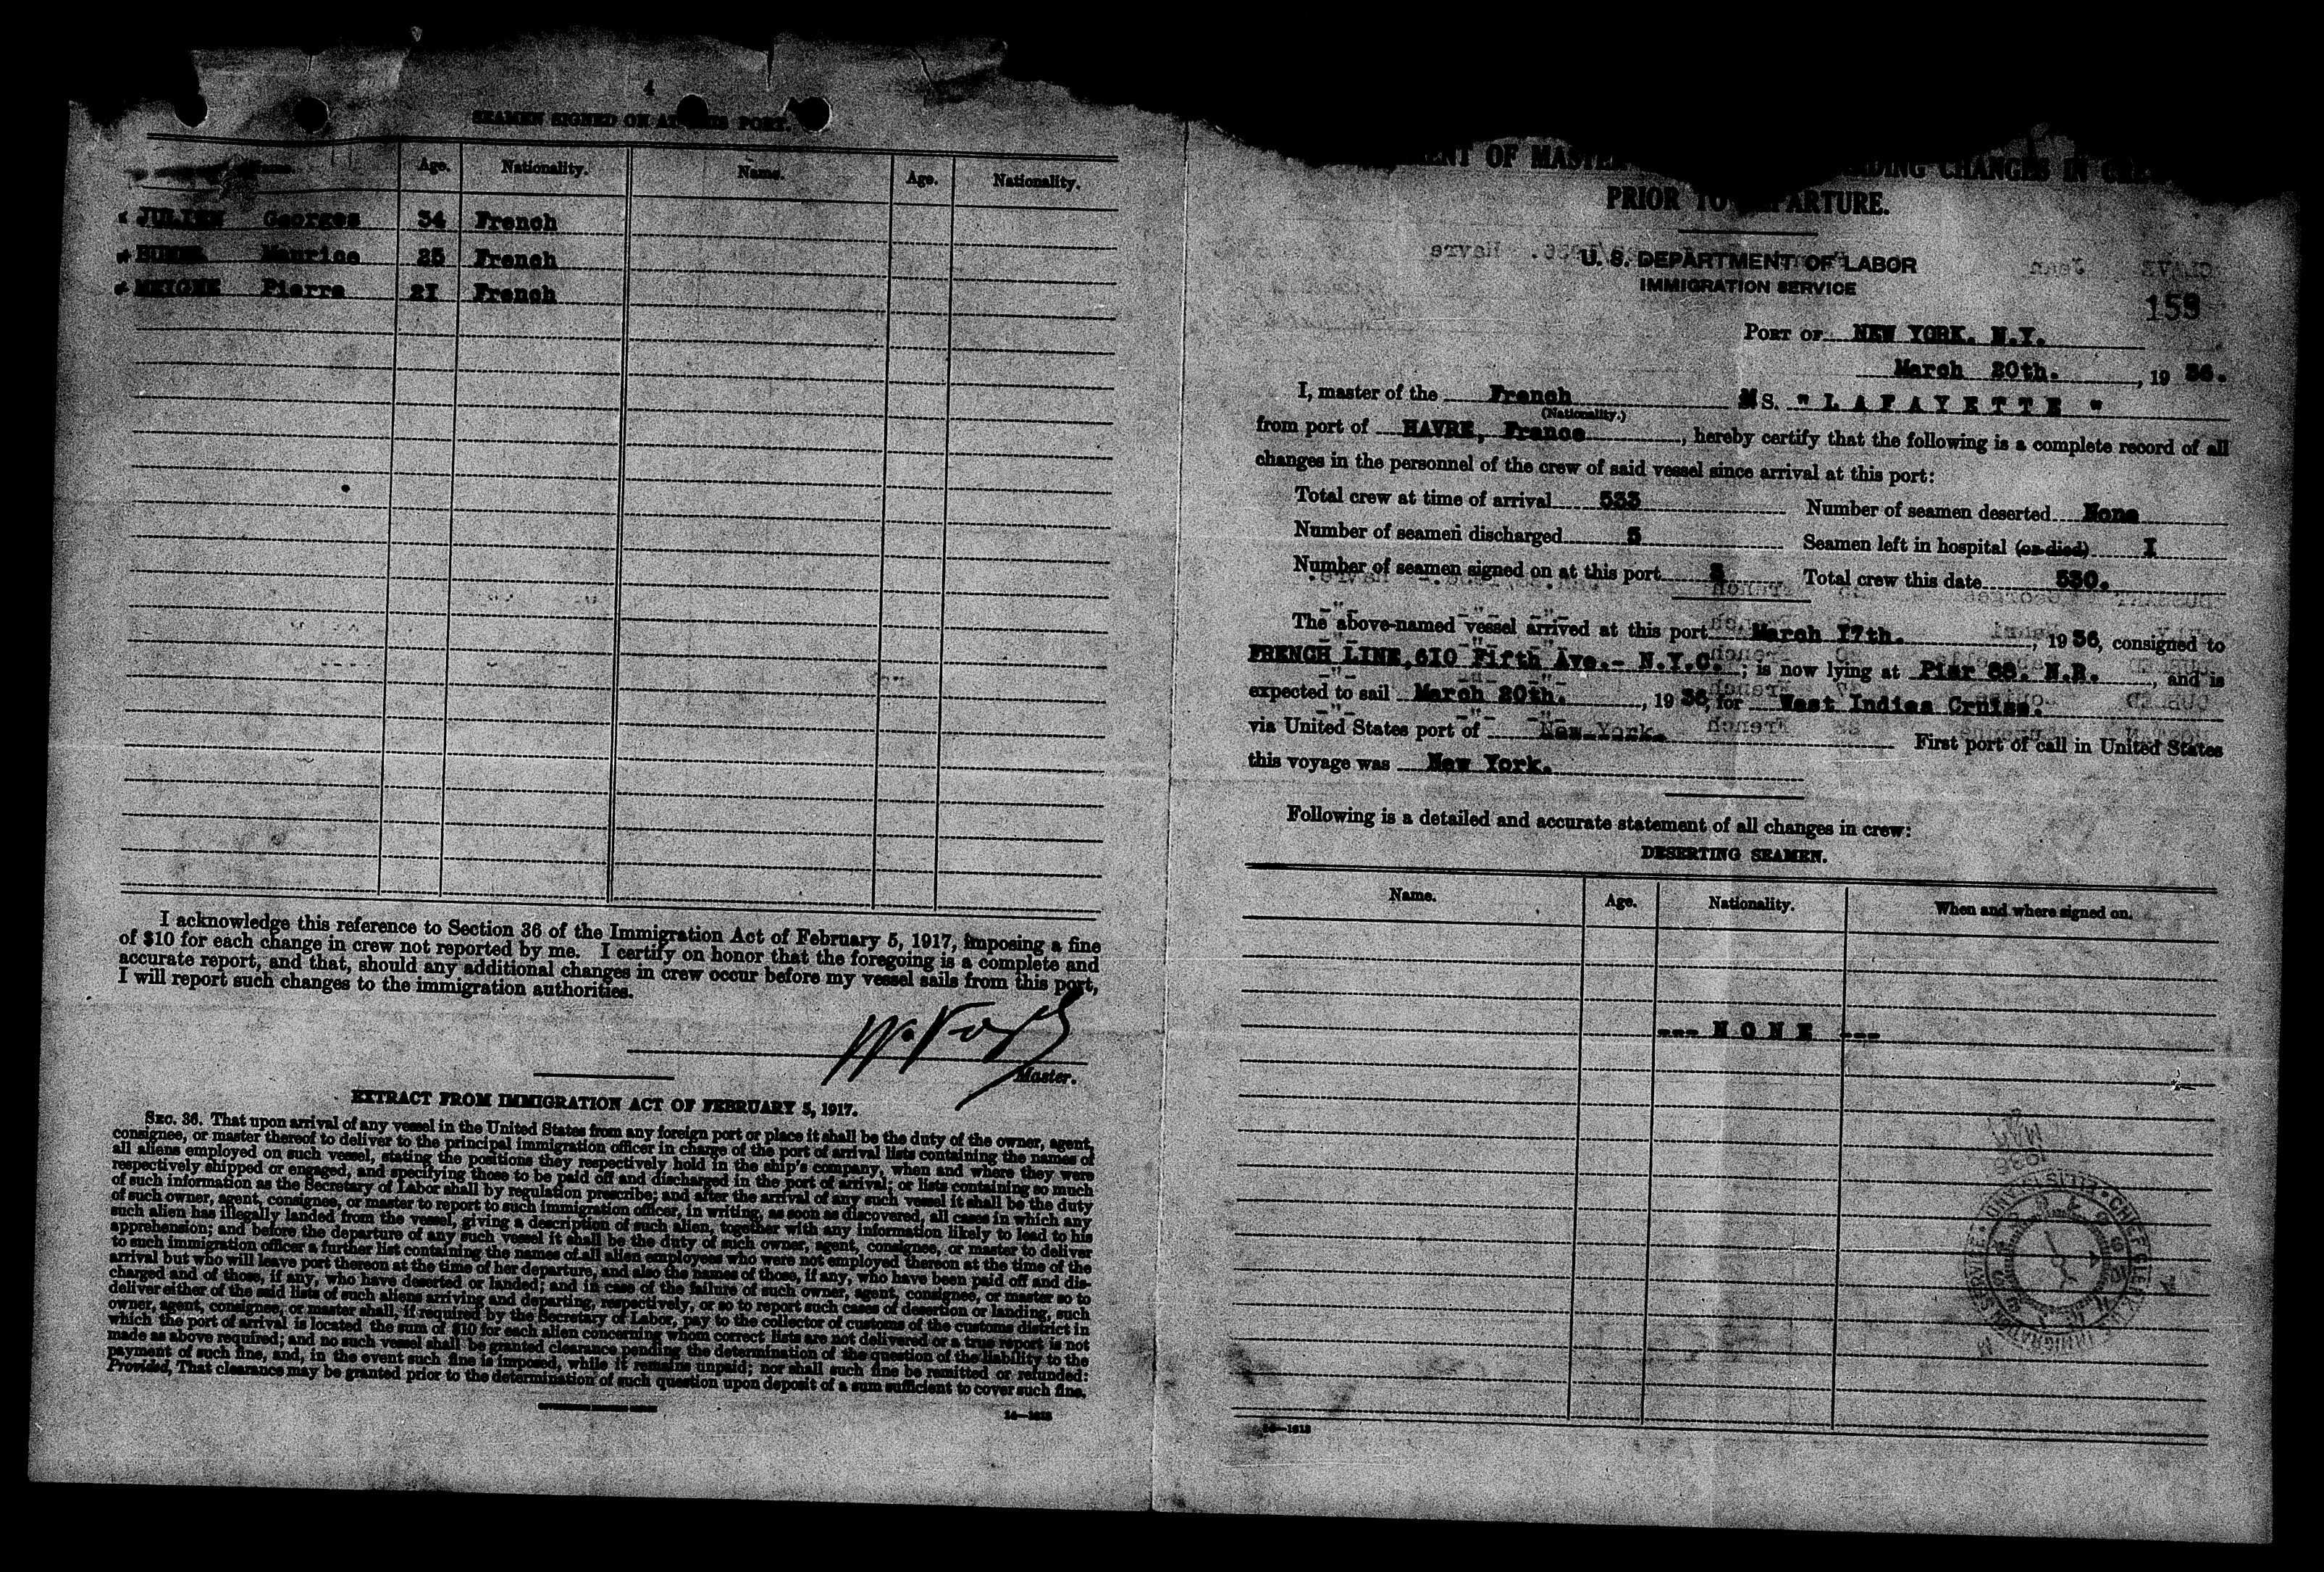 4
SEAMEN SIGNED ON AT THIS PORT.
Name. Age. Nationality. Name. Age. Nationality.
JULIEN Georges 34 French
Maurice 25 French
MEIGNE Pierre 21 French
I acknowledge this reference to Section 36 of the Immigration Act of February 5, 1917, imposing a fine
of $10 for each change in crew not reported by me. I certify on honor that the foregoing is a complete and
accurate report, and that, should any additional changes in crew occur before my vessel sails from this port,
I will report such changes to the immigration authorities.
Master.
EXTRACT FROM IMMIGRATION ACT OF FEBRUARY 5, 1917.
SEC. 36. That upon arrival of any vessel in the United States from any foreign port or place it shall be the duty of the owner, agent,
consignee, or master thereof to deliver to the principal immigration officer in charge of the port of arrival lists containing the names of
all aliens employed on such vessel, stating the positions they respectively hold in the ship's company, when and where they were
respectively shipped or engaged, and specifying those to be paid off and discharged in the port of arrival; or lists containing so much
of such information as the Secretary of Labor shall by regulation prescribe; and after the arrival of any such vessel it shall be the duty
of such owner, agent, consignee, or master to report to such immigration officer, in writing, as soon as discovered, all cases in which any
such alien has illegally landed from the vessel, giving a description of such alien, together with any information likely to lead to his
apprehension; and before the departure of any such vessel it shall be the duty of such owner, agent, consignee, or master to deliver
to such immigration officer a further list containing the names of all alien employees who were not employed thereon at the time of the
arrival but who will leave port thereon at the time of her departure, and also the names of those, if any, who have been paid off and dis-
charged and of those, if any, who have deserted or landed; and in case of the failure of such owner, agent, consignee, or master so to
deliver either of the said lists of such aliens arriving and departing, respectively, or so to report such cases of desertion or landing, such
owner, agent, consignee, or master shall, if required by the Secretary of Labor, pay to the collector of customs of the customs district in
which the port of arrival is located the sum of $10 for each alien concerning whom correct lists are not delivered or a true report is not
made as above required; and no such vessel shall be granted clearance pending the determination of the question of the liability to the
payment of such fine, and, in the event such fine is imposed, while it remains unpaid; nor shall such fine be remitted or refunded:
Provided, That clearance may be granted prior to the determination of such question upon deposit of a sum sufficient to cover such fine.
14—1213
OF MASTER CHANGES IN
PRIOR TO DEPARTURE.
U. S. DEPARTMENT OF LABOR
IMMIGRATION SERVICE
159
PORT OF NEW YORK. N.Y.
March 20th. , 19 36.
I, master of the French MS. "LAFAYETTE"
(Nationality.)
from port of HAVRE, France , hereby certify that the following is a complete record of all
changes in the personnel of the crew of said vessel since arrival at this port:
Total crew at time of arrival 533 Number of seamen deserted None
Number of seamen discharged 5 Seamen left in hospital (or died) I
Number of seamen signed on at this port 3 Total crew this date 530.
The above-named vessel arrived at this port March 17th. , 19 36, consigned to
FRENCH LINE, 610 Fifth Ave.- N.Y.C. ; is now lying at Pier 88. N.R. , and is
expected to sail March 20th. , 19 36, for West Indies Cruise.
via United States port of New York. First port of call in United States
this voyage was New York.
Following is a detailed and accurate statement of all changes in crew:
DESERTING SEAMEN.
Name. Age. Nationality. When and where signed on.
--- NONE ---
14—1213